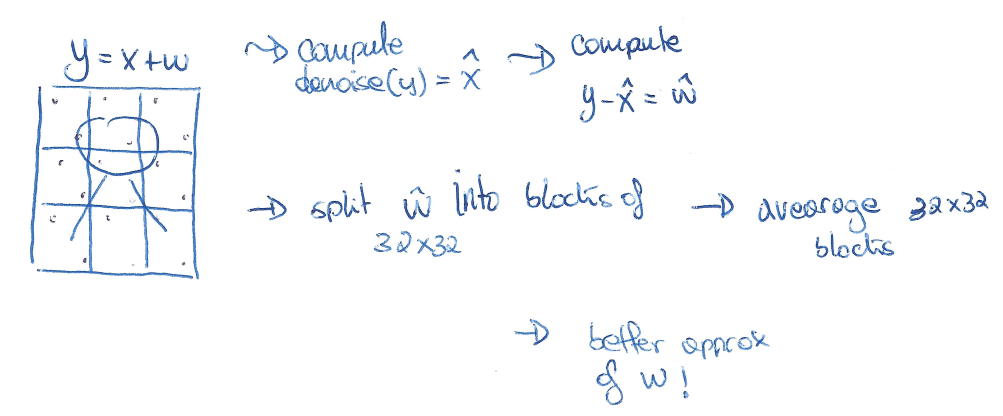 y = x + w
~> compute
denoise(y) = x̂
~> compute
y - x̂ = ŵ
→ split ŵ into blocks of
32x32
→ avearage 32x32
blocks
→ better approx
of w!